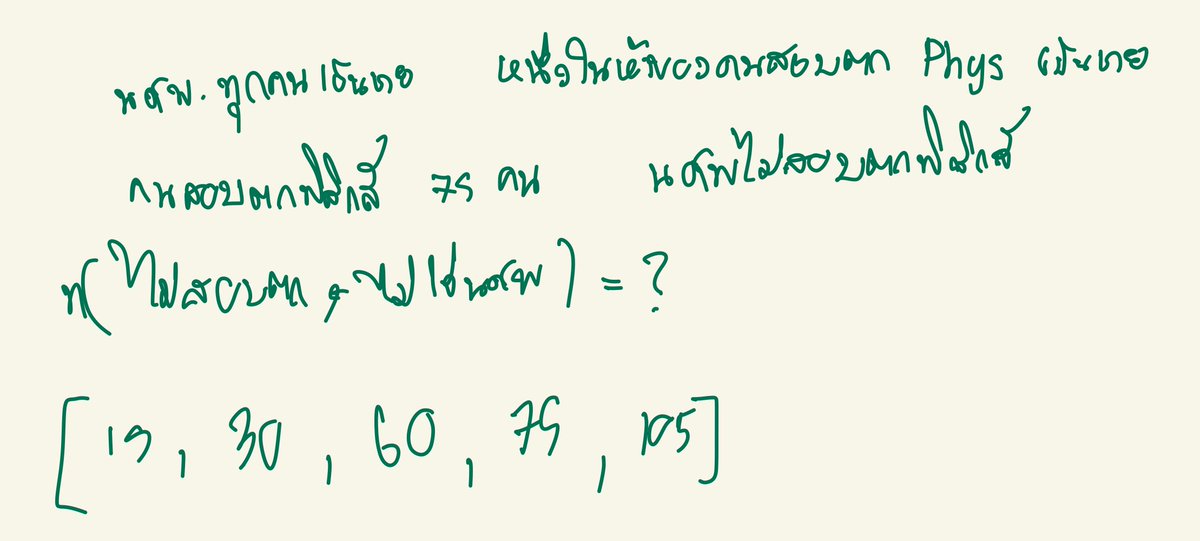 นศพ. ทุกคนเป็นชาย หนึ่งในห้าของคนสอบตก Phys เป็นชาย
คนสอบตกฟิสิกส์ 75 คน นศพไม่สอบตกฟิสิกส์
n( ไม่สอบตก, ไม่ใช่นศพ ) = ?
[ 15, 30, 60, 75, 105 ]